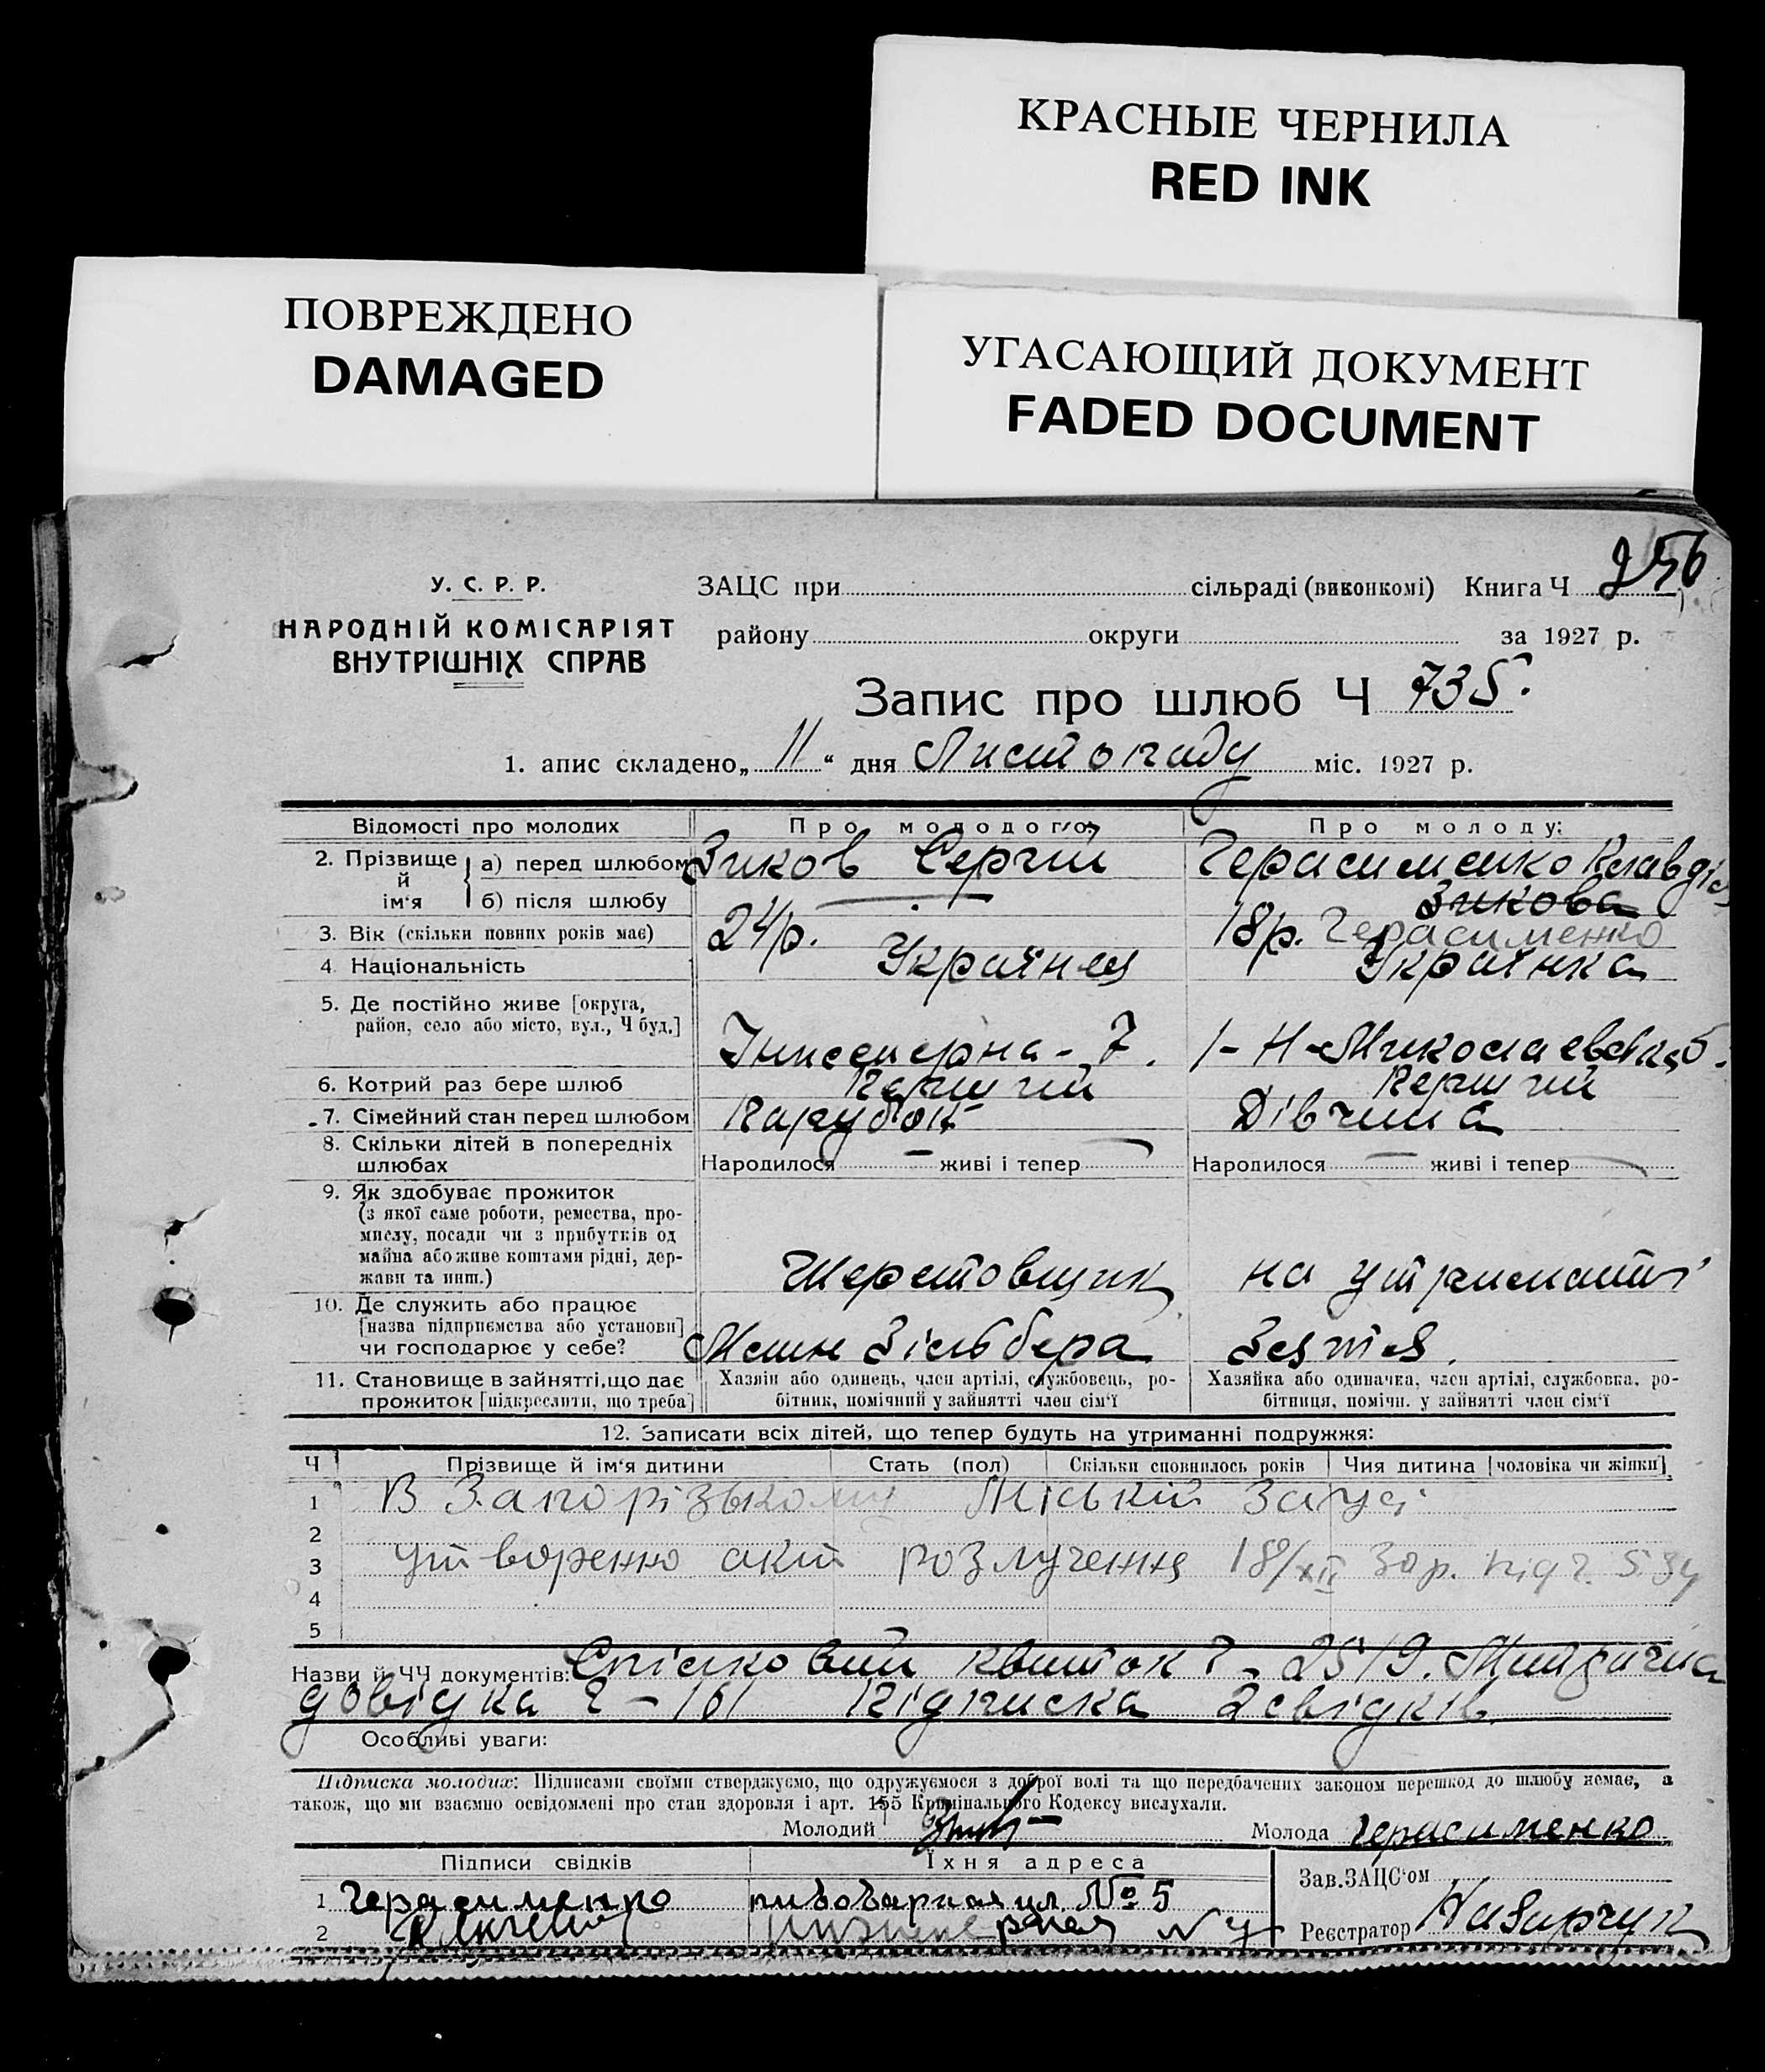 КРАСНЫЕ ЧЕРНИЛА
RED INK
ПОВРЕЖДЕНО
DAMAGED
УГАСАЮЩИЙ ДОКУМЕНТ
FADED DOCUMENT
256
У. С. Р. Р.
НАРОДНІЙ КОМІСАРІЯТ
ВНУТРІШНІХ СПРАВ
ЗАЦС при сільраді (виконкомі) Книга Ч
району округи за 1927 р.
Запис про шлюб Ч 735.
1. апис складено „11“ дня Листопаду міс. 1927 р.
Відомості про молодих Про молодого: Про молоду:
2. Прізвище й ім‘я а) перед шлюбом Зиков Сергій Герасименко Клавдія
б) після шлюбу — Зикова
3. Вік (скільки повних років має) 24р. 18р. Герасименко
4. Національність Українец Українка
5. Де постійно живе [округа,
район, село або місто, вул., Ч буд.] Інженерна - 7. 1-Н-Миколаевська 5.
6. Котрий раз бере шлюб Перший Перший
7. Сімейний стан перед шлюбом Парубок Дівчина
8. Скільки дітей в попередніх
шлюбах Народилося — живі і тепер — Народилося — живі і тепер —
9. Як здобуває прожиток
(з якої саме роботи, ремества, про-
мислу, посади чи з прибутків од
майна або живе коштами рідні, дер-
жави та инш.) Шерстовщик на утриманні
10. Де служить або працює
[назва підприємства або установи]
чи господарює у себе? Зільбера Зятя.
11. Становище в зайнятті, що дає
прожиток [підкреслити, що треба]
Хазяін або одинець, член артілі, службовець, ро-
бітник, помічний у зайнятті член сім‘ї
Хазяйка або одиначка, член артілі, службовка, ро-
бітниця, помічн. у зайнятті член сім‘ї
12. Записати всіх дітей, що тепер будуть на утриманні подружжя:
Ч Прізвище й ім‘я дитини Стать (пол) Скільки сповнилось років Чия дитина [чоловіка чи жінки]
1 В Запорізькому Міській Загсі
2
3 утворенно акт розлучення 18/XII 30р. під ч. 534
4
5
Назви й ЧЧ документів: Спілковий квиток Ч - 2519. Метрична
довідка Ч - 161 Підписка 2 свідків.
Особливі уваги:
Підписка молодих: Підписами своїми стверджуємо, що одружуємося з доброї волі та що передбачених законом перешкод до шлюбу немає, а
також, що ми взаємно освідомлені про стан здоровля і арт. 155 Кримінального Кодексу вислухали.
Молодий Молода Герасименко
Підписи свідків Їхня адреса
1 Герасименко пивоварная ул № 5
2 N 7
Зав. ЗАЦС‘ом
Реєстратор